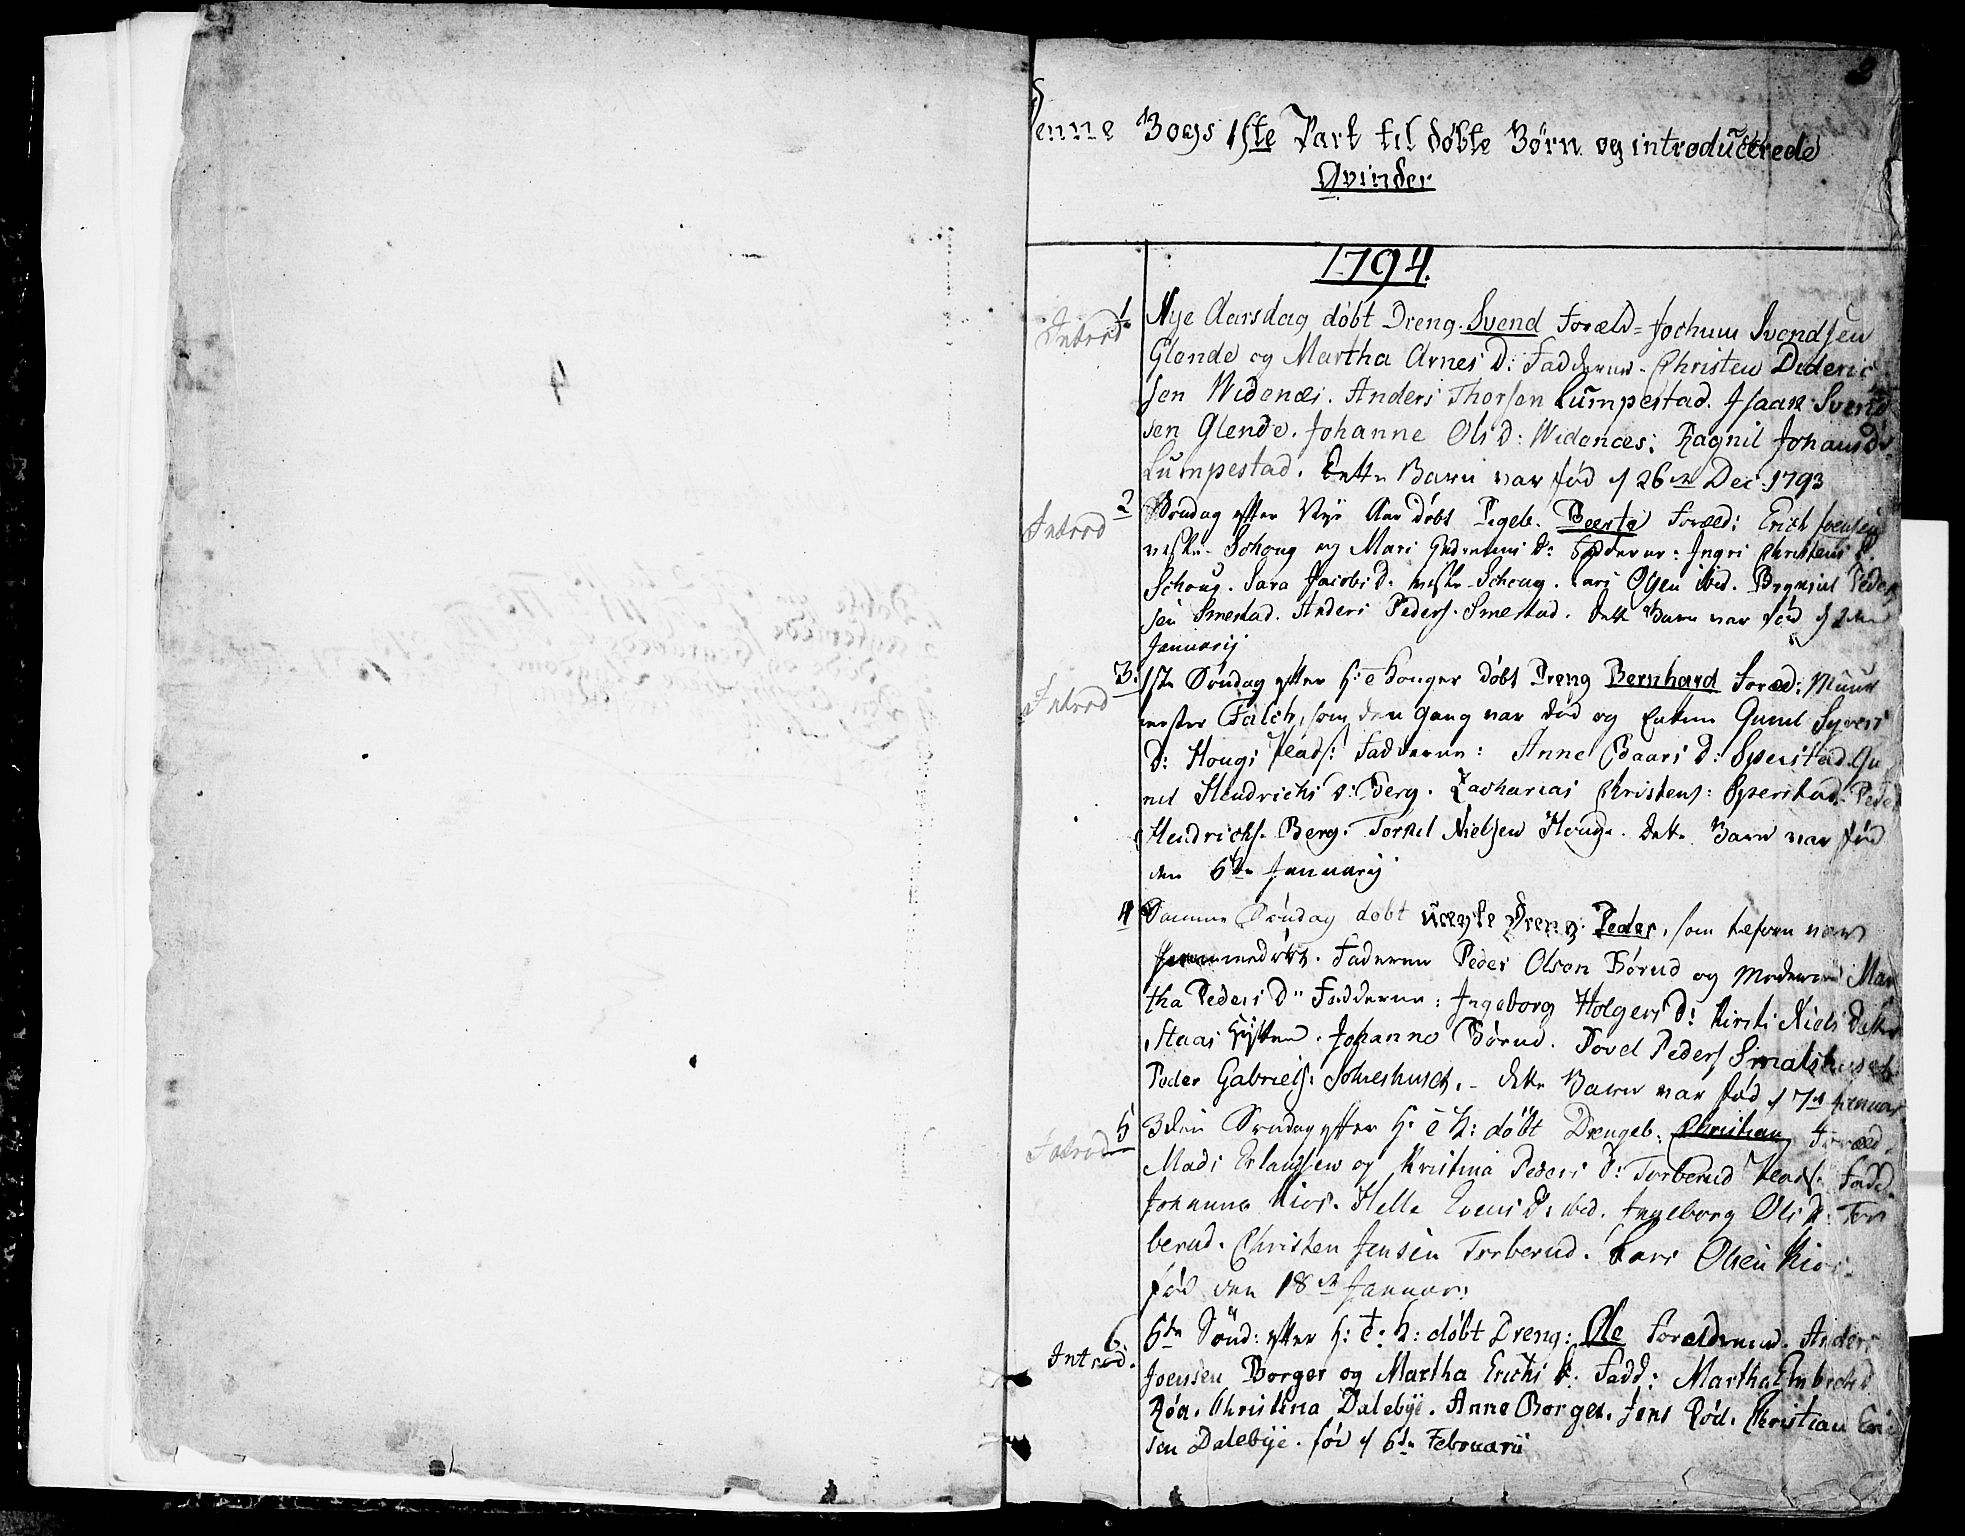 2
Denne Bogs 1ste Part til døbte Børn og introducerede
Qvinder
1794.
1 Introd
Nye Aarsdag døbt Dreng. Svend Foræld= Jochum Svendsen
Glende og Martha Arnes D: Fadderne. Christen Dideric
sen Widenæs. Anders Thorsen Lumpestad. Isaak Svend
sen Glende. Johanne Ols D: Widenæs: Ragnil Johans D.
Lumpestad. Dette Barn var fød d 26de Dec: 1793
2 Introd
Søndag efter Nye Aar døbt Pigeb. Beerte Foræld: Erich Joensen
neste Schoug og Mari D: Fadderne: Ingri Christens D.
Schoug. Sara Jacobs D. neste Schoug. Lars Olsen ibid. Brynild Peder
sen Smestad. Anders Peders. Smestad. Dette Barn var fød d 2den
Januarij
3. Introd
1ste Søndag efter H: 3 Konger døbt Dreng Bernhard Foræld: Muur
mester Falch, som den Gang var død og Enken Gunil Syvers
D: Hougs Plads: Fadderne: Anne Baars D: Speristad. Gu
nil Hendrichs D: Berg. Zacharias Christens: Speristad. Peder
Hendrichs. Berg. Torkel Nielsen Houg. Dette Barn var fød
den 6te Januarij
4
Samme Søndag døbt uægte Dreng Peder, som before var
hjemmedøbt. Faderen Peder Olsen Børud og Moderen Mar
tha Peders D" Fadderne: Ingeborg Holgers D: Kirsti Niels Datter
Staas Hytten. Johanne Børud. Povel Peders Smalshuset
Peder Gabriels: Solieshuset. - Dette Barn var fød d 7de Januar
5 Introd
3die Søndag efter H: 3 K: døbt Drengeb. Christian Foræld.
Mads Erlandsen og Kristina Peders D: Torberud Plads. Fadd.
Johanna Kios. Helle Evens D: ibid. Ingeborg Ols D: Tor
berud. Christen Jensen Torberud. Lars Olsen Kios.
fød den 18de Januar:
6 Introd.
5te Sønd: efter H: 3: K: døbt Dreng: Ole Forældrene. Anders
Joensen Borger og Martha Erichs D. Fadd: Martha Embrichs D
Røa. Christina Dalebye. Anne Borger. Jens Rød. Christian Eric
sen Dalebye. fød d 6te Februarii